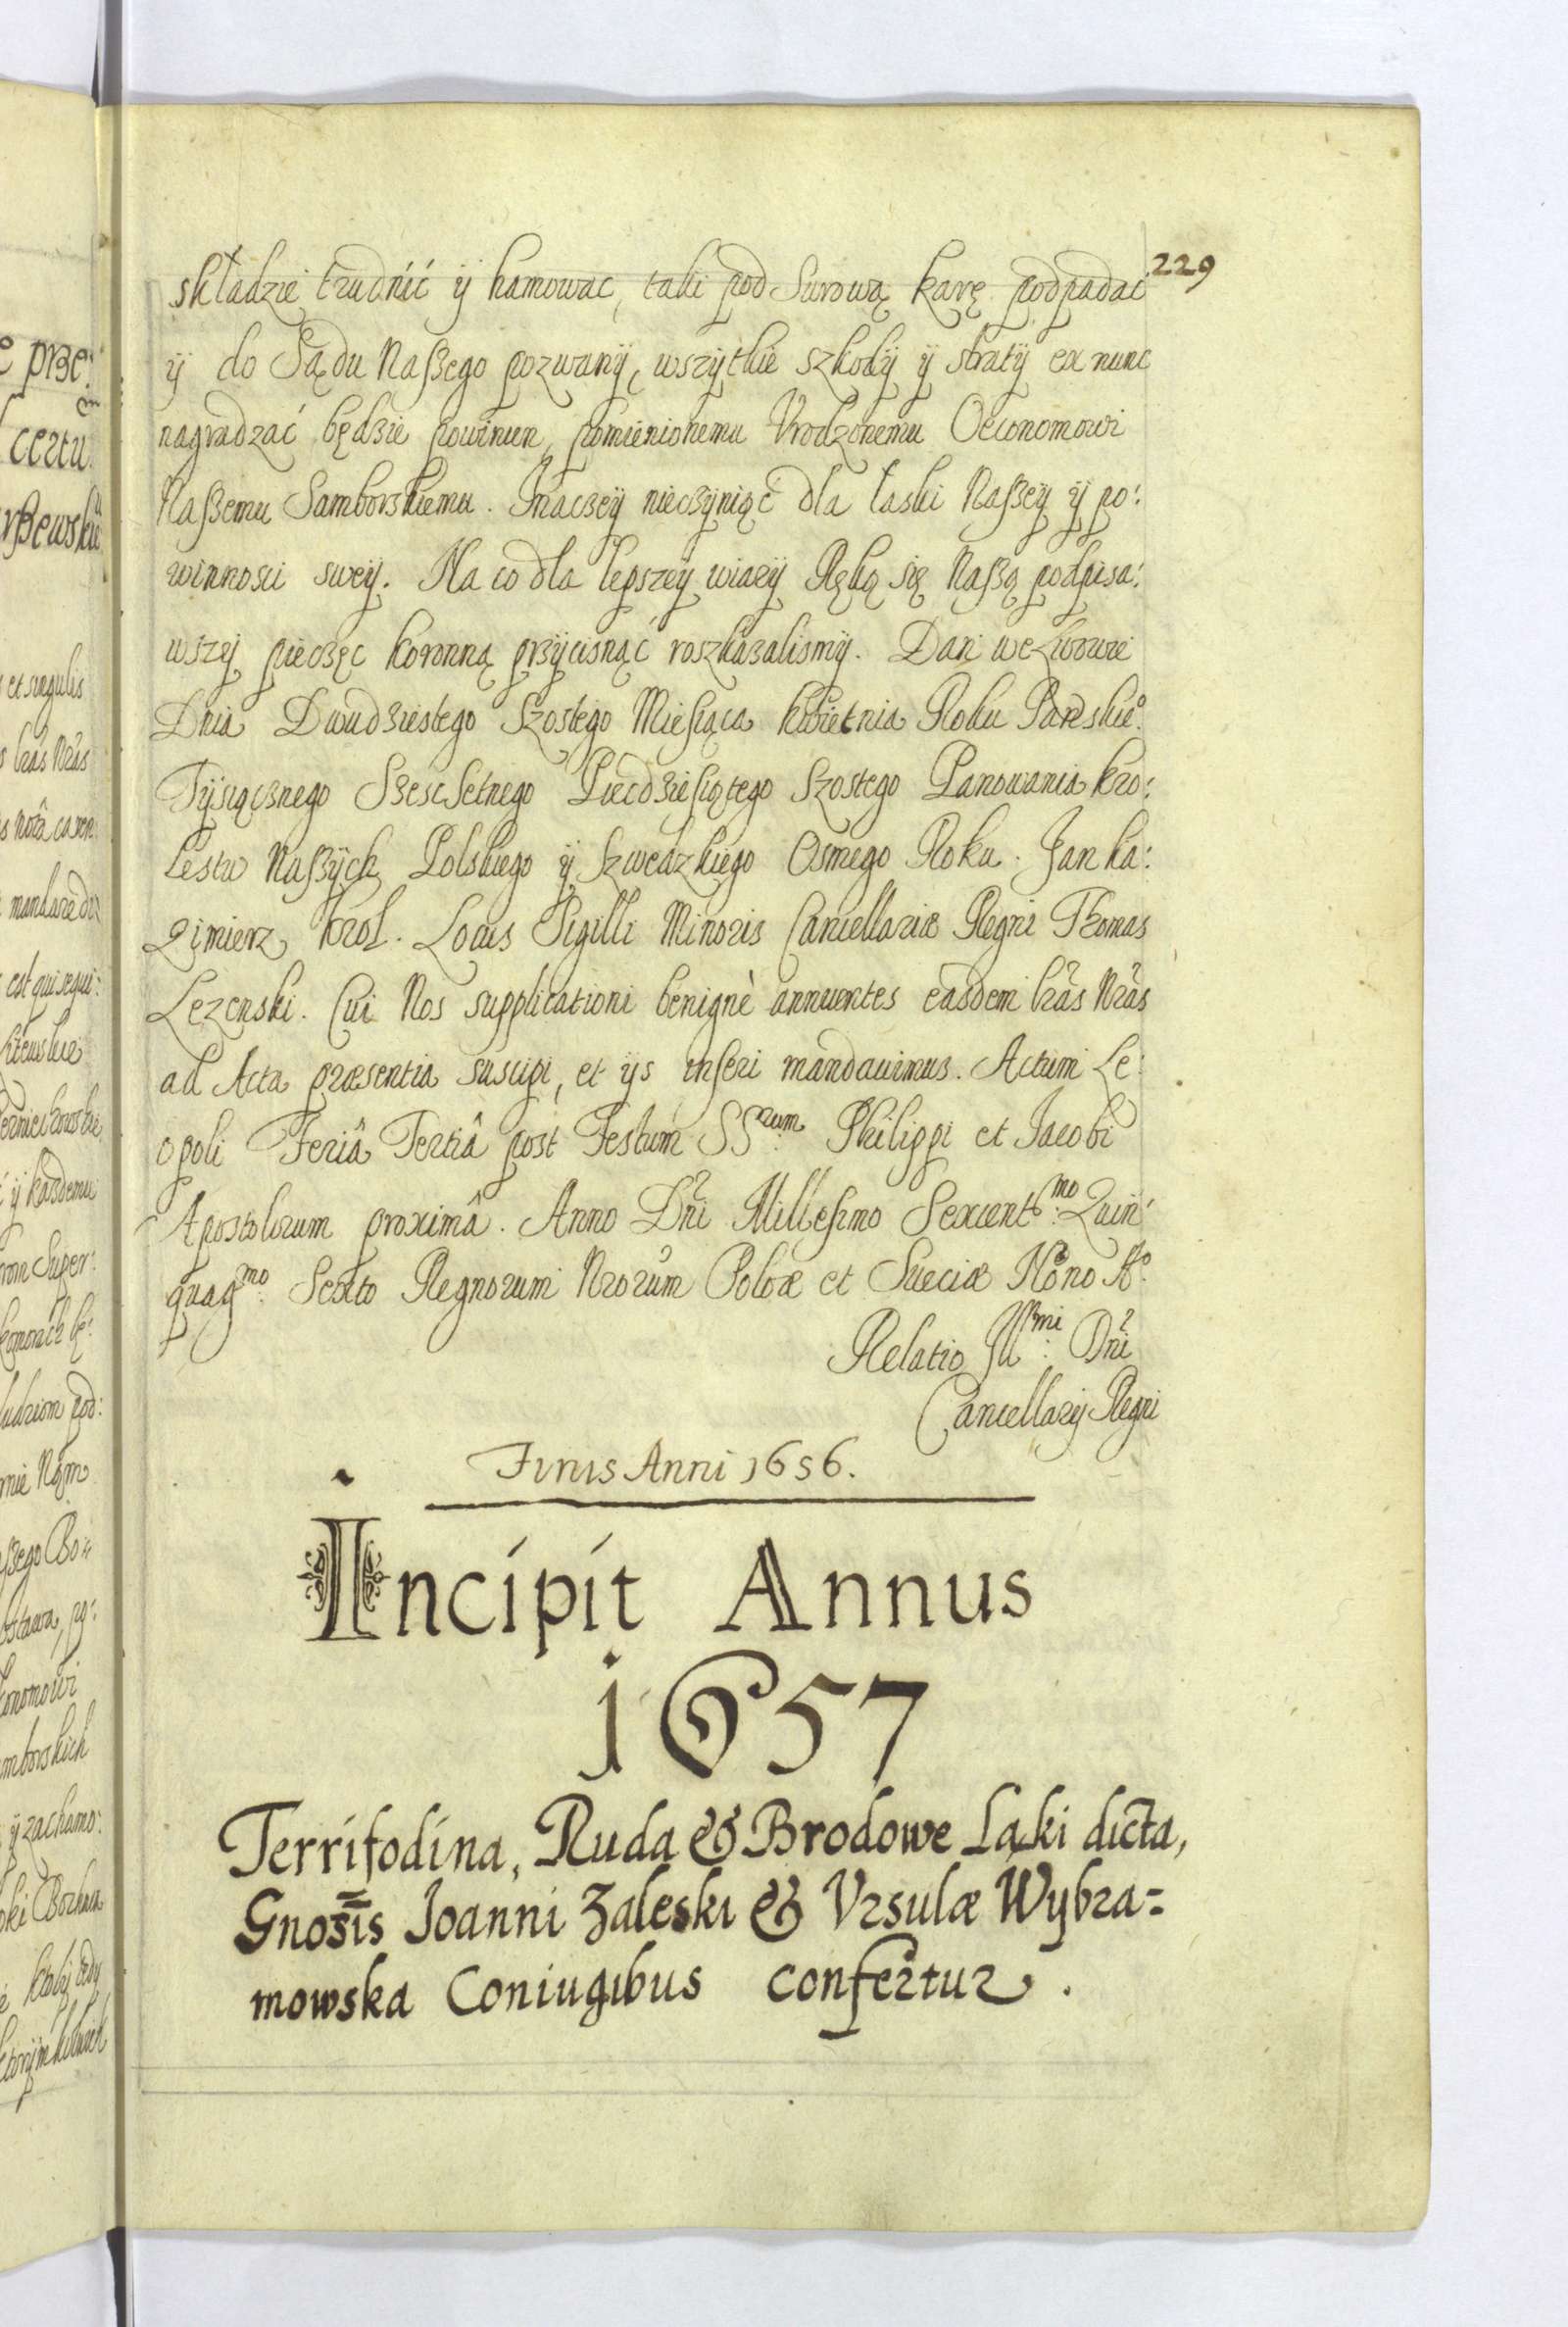 229
składzie trudnić ÿ hamowac, taki pod Surową karę podpadać
ÿ do Sądu Naßego pozwanÿ, wszÿtkie szkodÿ ÿ stratÿ ex nunc
nagradzać będzie powinien, pomienionemu Vrodzonemu Oeconomowi
Naßemu Samborskiemu. Inaczeÿ nieczÿniąć dla łaski Naßeÿ ÿ po:
winnosci sweÿ. Na co dla lepszeÿ wiarÿ Ręką się Naßą podpisa:
wszÿ pieczęc koronną przÿcisnąć roszkazalismÿ. Dan we Lwowie
Dnia Dwudziestego Szostego Miesiąca kwietnia Roku Panskie͠º
Tÿsiącznego Szescsetnego Piecdziesiątego Szostego Panowania kro:
lestw Naßÿch Polskiego ÿ Szwedzkiego Osmego Roku. Jan ka:
zimierz krol. Locus Sigilli Minoris Cancellariæ Regni Thomas
Lezenski. Cui Nos supplicationi benignè annuentes easdem lr̃as Nr̃as
ad Acta præsentia suscipi, et ijs inseri mandauimus. Actum Le:
opoli Feriâ Tertiâ post Festum SSrum: Philippi et Jacobi
Apostolorum proximâ. Anno Dn̄i Millesimo Sexcentmo: Quin:
quagmo: Sexto Regnorum Nrorum Polõæ et Sueciæ Nono Aº
Relatio Illmi: Dn̄i
Cancellarij Regni
Finis Anni 1656.
Incipit Annus
1657
Terrifodina, Ruda & Brodowe Łąki dicta,
Gnosis Joanni Zaleski & Vrsulæ Wÿbra=
mowska Coniugibus confertur.